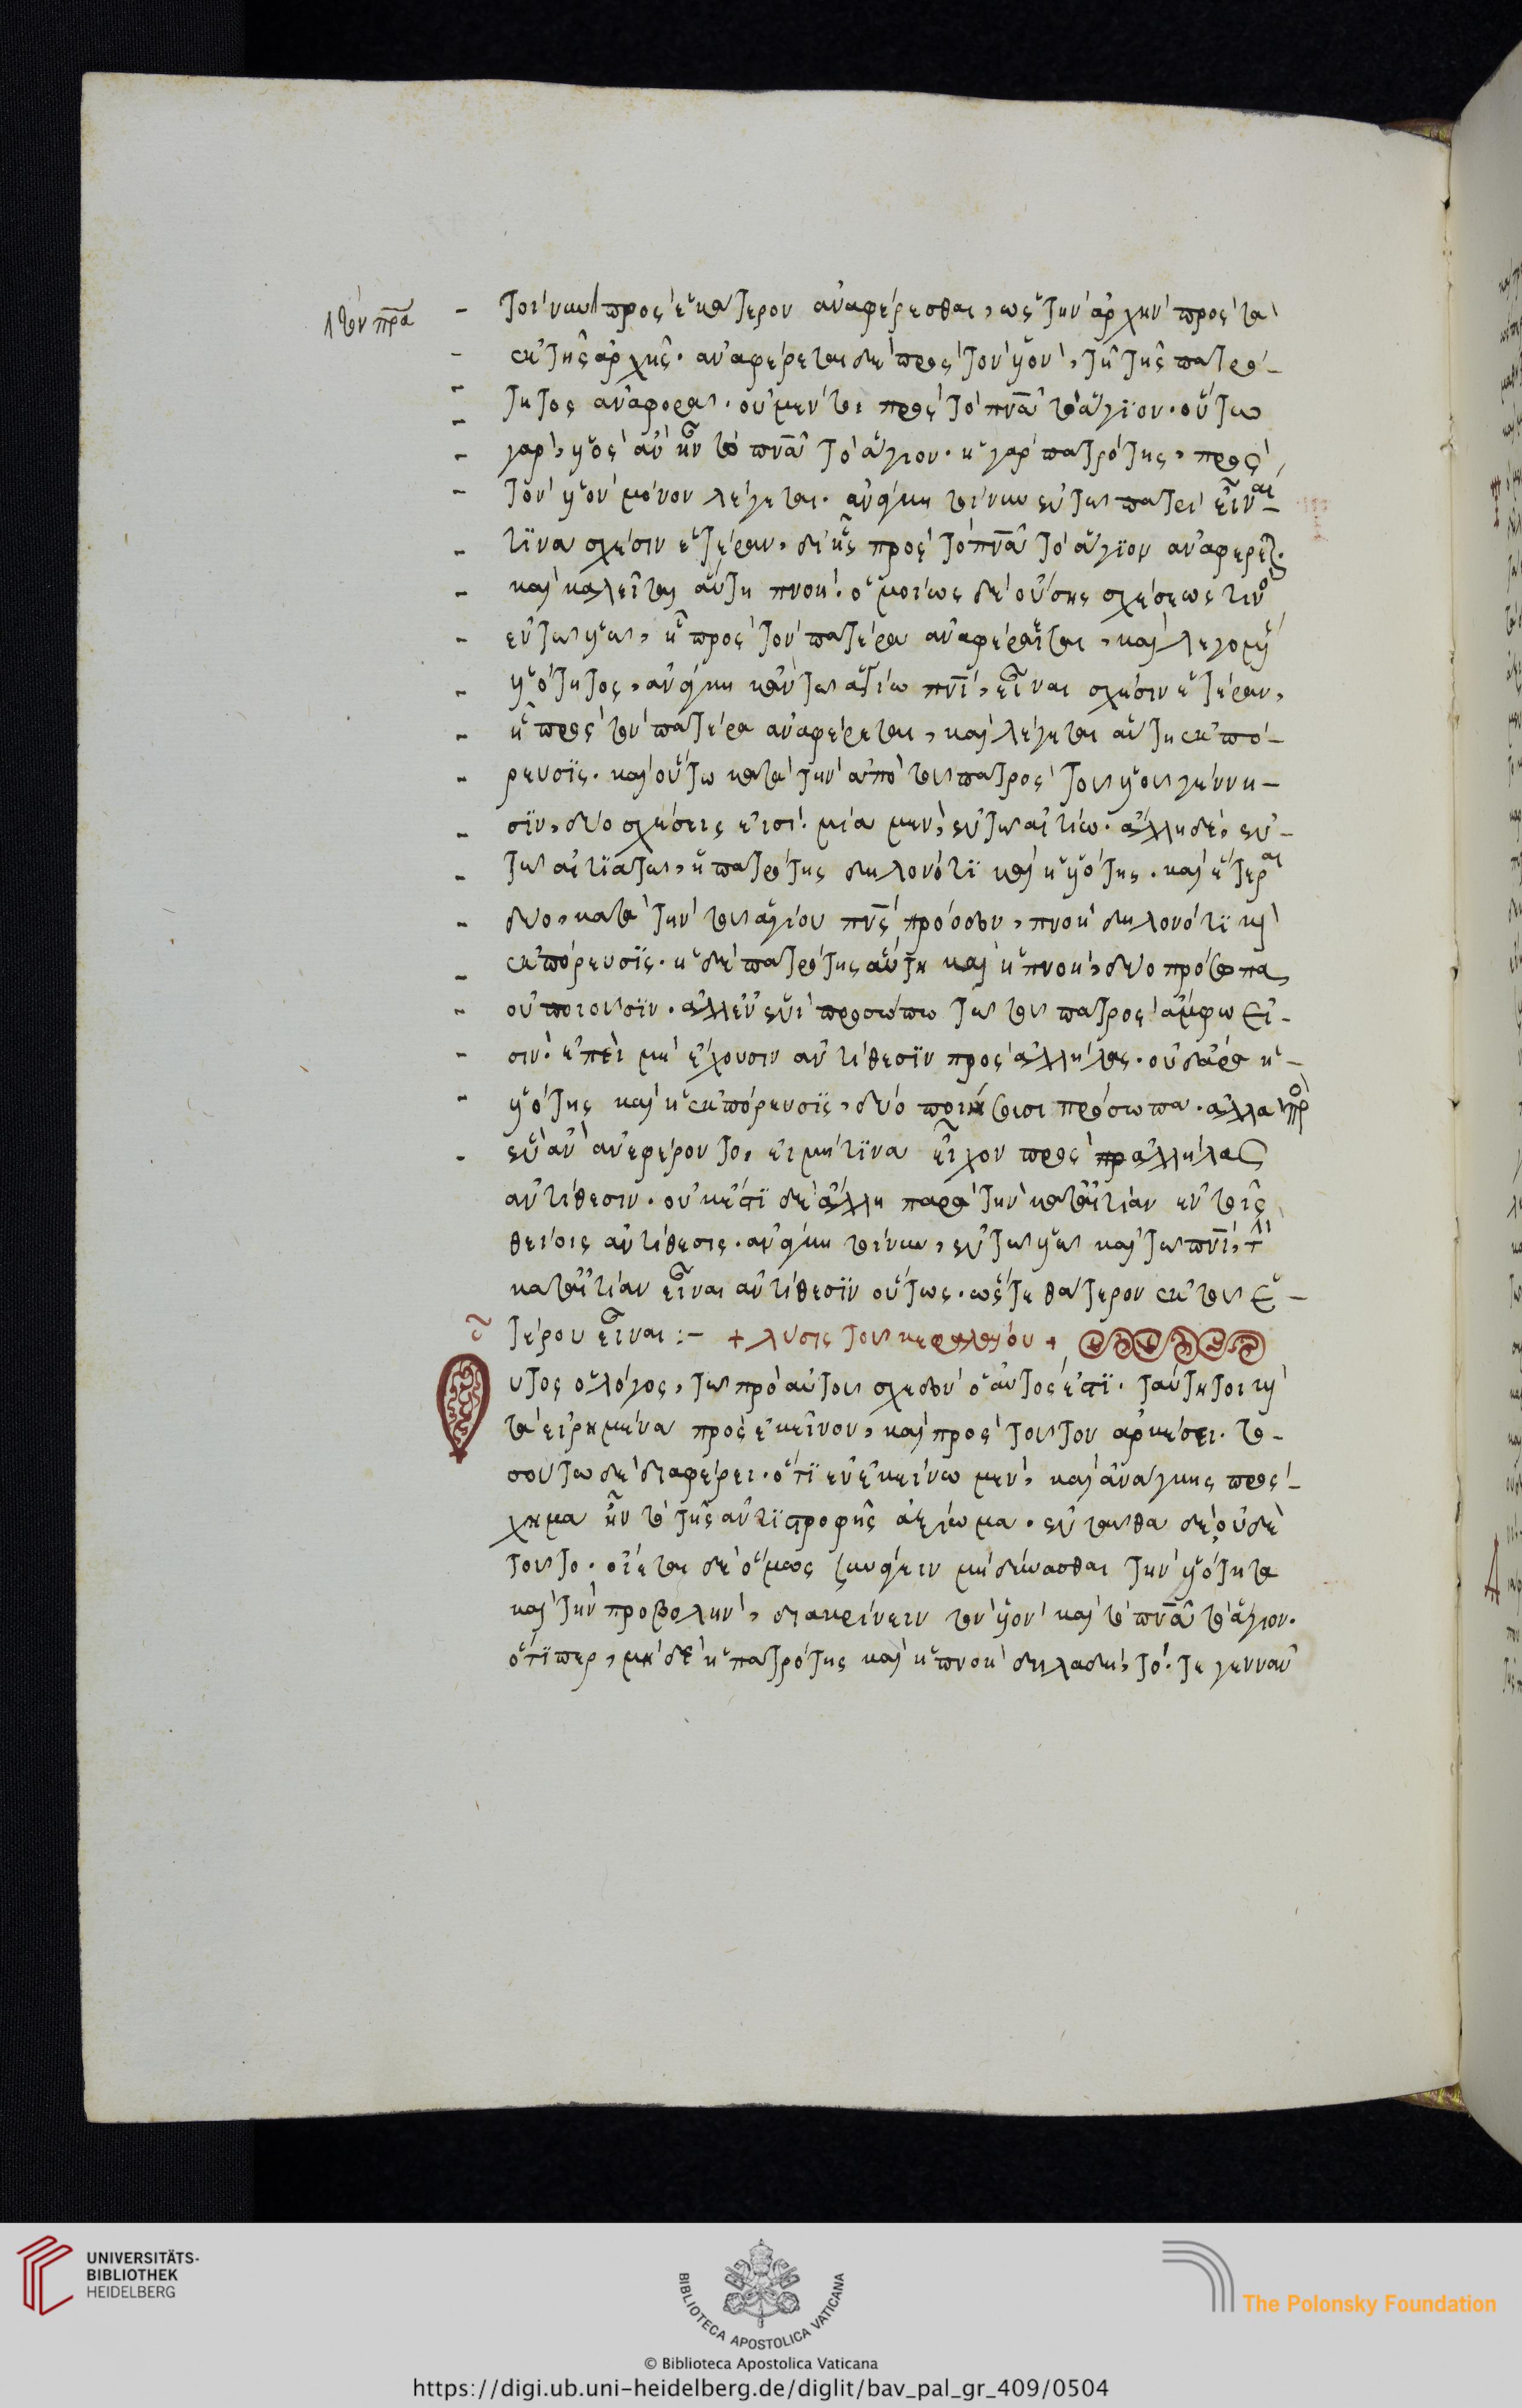 τὸν πρα
τοίνυν πρὸς ἑκάτερον ἀναφέρεσθαι, ὡς τὴν ἀρχὴν πρὸς τὰ
ἐκ τῆς ἀρχῆς. ἀναφέρεται δὲ πρὸς τὸν υἱὸν, τῇ τῆς πατρό-
τητος ἀναφορᾷ. οὐ μέντοι πρὸς τὸ πνᾶ τὸ ἅγιον. οὕτω
γὰρ, υἱὸς ἂν ἦν τὸ πνᾶ τὸ ἅγιον. ἡ γὰρ πατρότης, πρὸς
τὸν υἱὸν μόνον λέγεται. ἀνάγκη τοίνυν ἐν τῷ πατρὶ εἶναι
τινα σχέσιν ἑτέραν, δι' ἧς πρὸς τὸ πνᾶ τὸ ἅγιον ἀναφέρεται.
καὶ καλεῖται αὕτη πνοή. ὁμοίως δὲ οὔσης σχέσεως τινὸς
ἐν τῷ υἱῷ, ἣ πρὸς τὸν πατέρα ἀναφέρεται, καὶ λεγομένης
υἱότητος, ἀνάγκη κἀν τῷ ἁγίῳ πνῑ, εἶναι σχέσιν ἑτέραν,
ἣ πρὸς τὸν πατέρα ἀναφέρεται, καὶ λέγεται αὕτη ἐκπό-
ρευσις. καὶ οὕτω κατὰ τὴν ἀπὸ τοῦ πατρὸς τοῦ υἱοῦ γέννη-
σιν, δύο σχέσεις εἰσί. μία μὲν, ἐν τῷ αἰτίῳ. ἄλλη δὲ, ἐν
τῷ αἰτιατῷ, ἡ πατρότης δηλονότι καὶ ἡ υἱότης. καὶ ἕτεραι
δύο, κατὰ τὴν τοῦ ἁγίου πνς πρόοδον, πνοὴ δηλονότι καὶ
ἐκπόρευσις. ἡ δὲ πατρότης αὕτη καὶ ἡ πνοὴ, δύο πρόσωπα,
οὐ ποιοῦσιν. ἀλλ' ἐν ἑνὶ προσώπῳ τῷ τοῦ πατρὸς ἄμφω εἰ-
σιν. ἐπεὶ μὴ ἔχουσιν ἀντίθεσιν πρὸς ἀλλήλας. οὐδ' ἄρα ἡ
υἱότης καὶ ἡ ἐκπόρευσις, δύο ποιήσουσι πρόσωπα. ἀλλὰ πρὸς
ἓν ἂν ἀνεφέροντο, εἰ μή τινα εἶχον πρὸς ἀλλήλας
ἀντίθεσιν. οὐκ ἔστι δὲ ἄλλη παρὰ τὴν κατ' αἰτίαν ἐν τοῖς
θείοις ἀντίθεσις. ἀνάγκη τοίνυν, ἐν τῷ υἱῷ καὶ τῷ πνῑ, τὴν
κατ' αἰτίαν εἶναι ἀντίθεσιν οὕτως. ὥστε θάτερον ἐκ τοῦ ἑ-
τέρου εἶναι :- + λύσις τοῦ κεφαλαίου +
Οὗτος ὁ λόγος, τῷ πρὸ αὐτοῦ σχεδὸν ὁ αὐτός ἐστι. ταύτῃ τοι καὶ
τὰ εἰρημένα πρὸς ἐκεῖνον, καὶ πρὸς τοῦτον ἀρκέσει. το-
σούτῳ δὲ διαφέρει. ὅτι ἐν ἐκείνῳ μὲν, καὶ ἀνάγκης πρός-
χημα ἦν τὸ τῆς ἀντιστροφῆς ἀξίωμα. ἐνταῦθα δὲ, οὐδὲ
τοῦτο. οἴεται δὲ ὅμως συνάγειν μὴ δύνασθαι τὴν υἱότητα
καὶ τὴν προβολὴν, διακρίνειν τὸν υἱὸν καὶ τὸ πνᾶ τὸ ἅγιον.
ὅτιπερ, μὴ δὲ ἡ πατρότης καὶ ἡ πνοὴ δηλαδὴ, τό, τε γεννᾶν
UNIVERSITÄTS-
BIBLIOTHEK
HEIDELBERG
BIBLIOTECA APOSTOLICA VATICANA
The Polonsky Foundation
© Biblioteca Apostolica Vaticana
https://digi.ub.uni-heidelberg.de/diglit/bav_pal_gr_409/0504